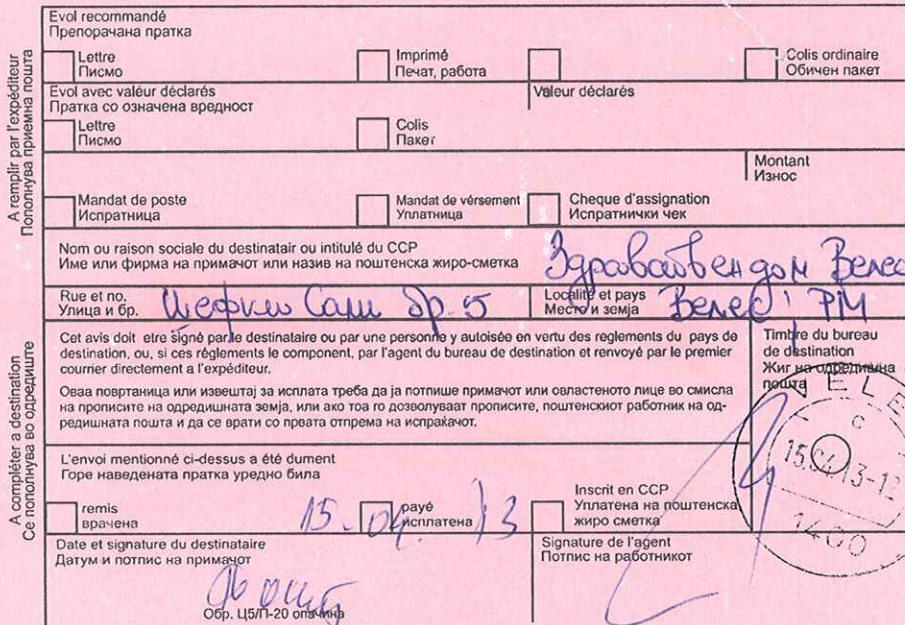 A remplir par l'expéditeur
Пополнува приемна пошта
Evol recommandé
Препорачана пратка
Lettre
Писмо
Imprimé
Печат, работа
Colis ordinaire
Обичен пакет
Evol avec valéur déclarés
Пратка со означена вредност
Valeur déclarés
Lettre
Писмо
Colis
Пакет
Montant
Износ
Mandat de poste
Испратница
Mandat de vérsement
Уплатница
Cheque d'assignation
Испратнички чек
Nom ou raison sociale du destinatair ou intitulé du CCP
Име или фирма на примачот или назив на поштенска жиро-сметка
Здравствен дом Велес
Rue et no.
Улица и бр.
Шефки Сали бр. 5
Localité et pays
Место и земја
Велес, РМ
A compléter a destination
Се пополнува во одредиште
Cet avis doit etre signé par le destinataire ou par une personne y autoisée en vertu des reglements du pays de
destination, ou, si ces réglements le component, par l'agent du bureau de destination et renvoyé par le premier
courrier directement a l'expéditeur.
Оваа повртаница или извештај за исплата треба да ја потпише примачот или овластеното лице во смисла
на прописите на одредишната земја, или ако тоа го дозволуваат прописите, поштенскиот работник на од-
редишната пошта и да се врати со првата отпрема на испраќачот.
Timbre du bureau
de destination
Жиг на одредишна
пошта
VELE
c
15.04.13-12
1400
L'envoi mentionné ci-dessus a été dument
Горе наведената пратка уредно била
remis
врачена
15.04. 13
payé
исплатена
Inscrit en CCP
Уплатена на поштенска
жиро сметка
Date et signature du destinataire
Датум и потпис на примачот
Signature de l'agent
Потпис на работникот
Обр. Ц5/П-20 опачина